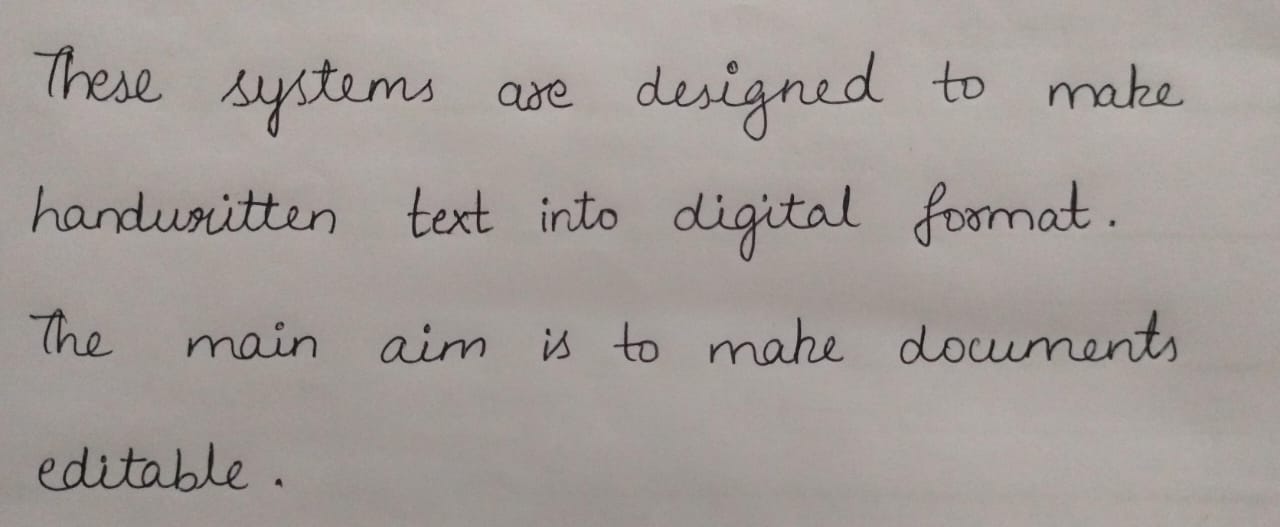 These systems are designed to make
handwritten text into digital format.
The main aim is to make documents
editable.